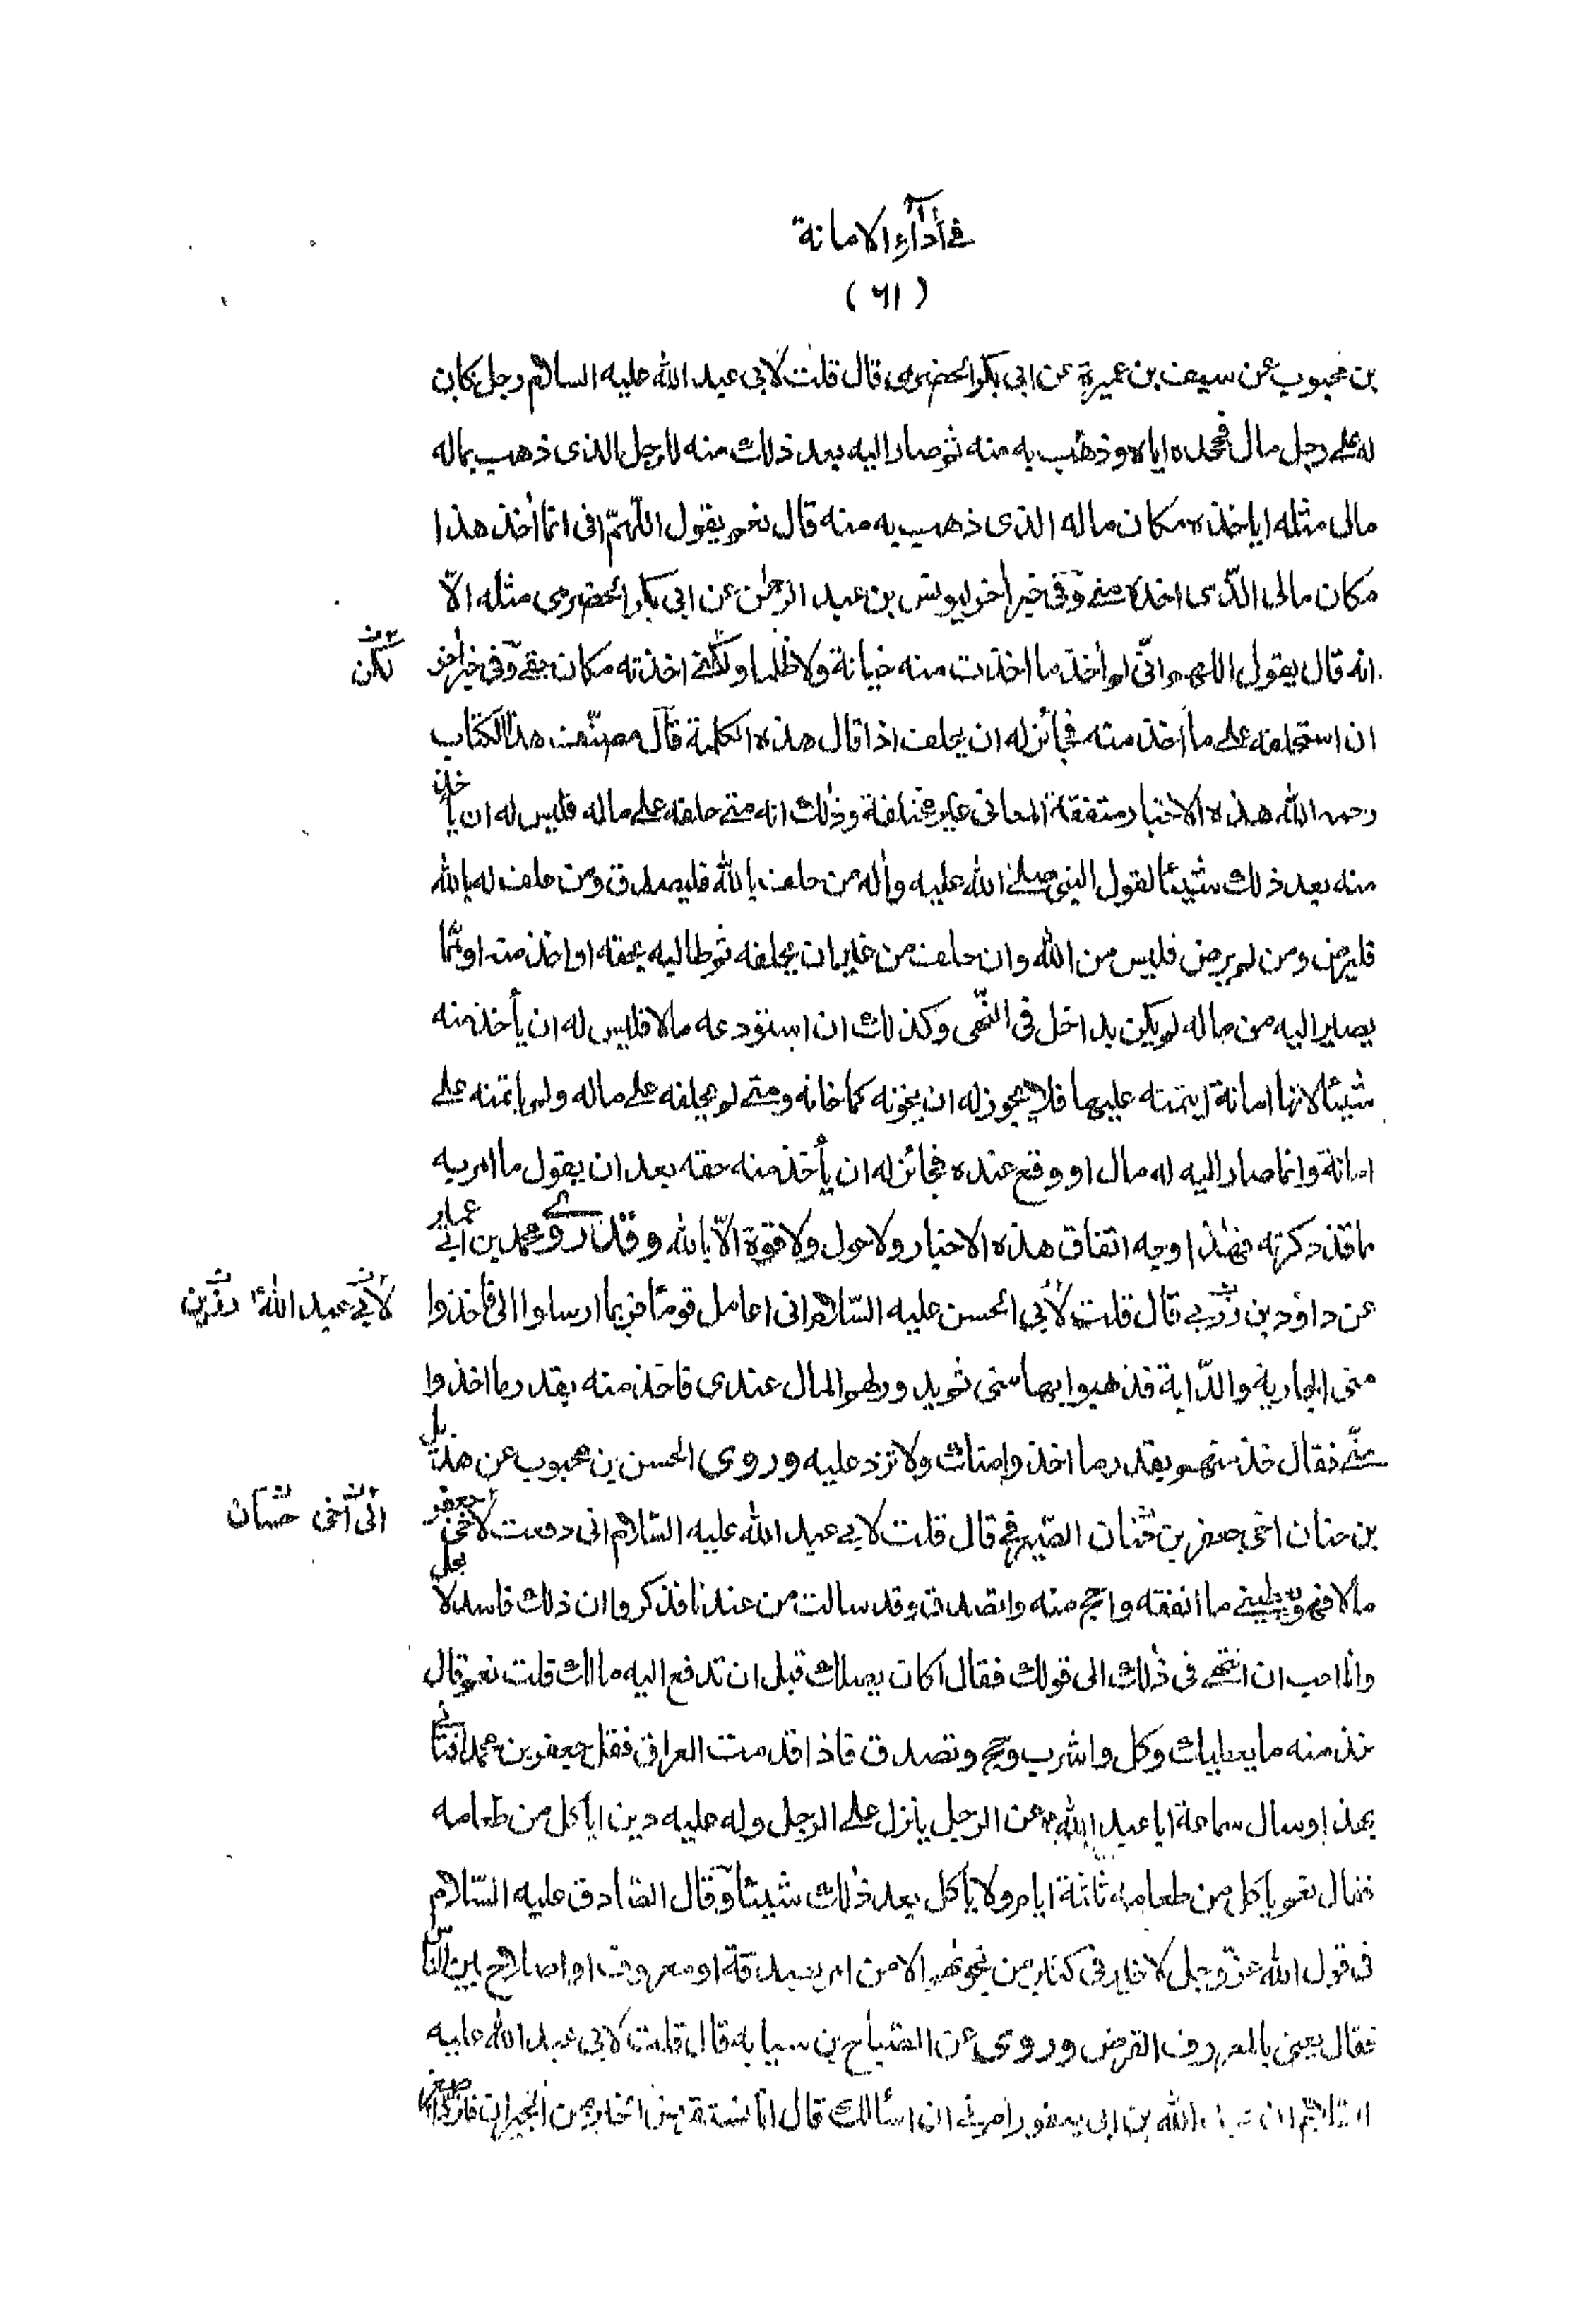 في أدآء الامانة
(٦١)
بن محبوب عن سيف بن عميرة عن ابي بكر الحضرمي قال قلت لأبي عبد الله عليه السلام رجل كان
له على رجل مال فجحده اياه وذهب به منه ثم صار اليه بعد ذلك منه للرجل الذى ذهب بماله
مال مثله اياخذه مكان ماله الذى ذهب به منه قال نعم يقول اللّهمّ انى انما أخذ هذا
مكان مالى الذّى اخذه منى وفى خبر أخر ليونس بن عبد الرحمٰن عن ابى بكر الحضرمى مثله الاّ
انه قال يقول اللهم انىّ لم أخذ ما اخذت منه خيانة ولا ظلما ولكنى اخذته مكان حقى وفى خبر أخر
لكن
ان استحلفه على ما أخذ منه فجائز له ان يحلف اذا قال هذه الكلمة قال مصنّف هذا الكتاب
رحمه الله هذه الاخبار متفقة المعانى غير مختلفة وذلك انه متى حلفه على ماله فليس له ان ياخذ
منه بعد ذلك شيئا لقول النبى صلى الله عليه وأله من حلف بالله فليصدق ومن حلف له بالله
فليرض ومن لم يرض فليس من الله وان حلف من غير ان يحلفه ثم طالبه بحقه او اخذ منه او مما
يصير اليه من ماله لم يكن بداخل فى النّهى وكذلك ان استودعه مالا فليس له ان يأخذ منه
شيئا لانها امانة ايتمنه عليها فلا يجوز له ان يخونه كما خانه ومتى لم يحلفه على ماله ولم ياتمنه على
امانة وانما صار اليه له مال او وقع عنده فجائز له ان يأخذ منه حقه بعد ان يقول ما امر به
مما قد ذكرته فهذا وجه اتفاق هذه الاخبار ولا حول ولا قوة الاّ بالله وقد روى محمد بن ابى عمير
عن داود بن زربى قال قلت لأبى الحسن عليه السّلام انى اعامل قوما فربما ارسلوا الى فاخذوا
لأبى عبد الله ؑ رزين
منى الجارية والدّابة فذهبوا بها منى ثم يدور لهم المال عندى فاخذ منه بقدر ما اخذوا
منّى فقال خذ منهم بقدر ما اخذوا منك ولا تزد عليه وروى الحسن بن محبوب عن هذيل
بن حنان اخى جعفر بن حنان الصّيرفى قال قلت لابى عبد الله عليه السّلام انى دفعت لأخى جعفر
الى أخى حسان
مالا فهو يعطينى ما انفقه واحج منه واتصدق وقد سالت من عندنا فذكروا ان ذلك فاسد لا يحل
وانا احب ان انتهى فى ذلك الى قولك فقال أكان يصلك قبل ان تدفع اليه مالك قلت نعم قال
خذ منه ما يعطيك وكل واشرب وحج وتصدق فاذا قدمت العراق فقل جعفر بن محمد افتانى
بهذا وسال سماعة ابا عبد الله ؑ عن الرجل ينزل على الرجل وله عليه دين اياكل من طعامه
فقال نعم ياكل من طعامه ثلثة ايام ولا ياكل بعد ذلك شيئا وقال الصّادق عليه السّلام
فى قول الله عزّ وجل لا خير فى كثير من نجوٰهم الا من امر بصدقة او معروف او اصلاح بين النّاس
فقال يعنى بالمعروف القرض وروى عن الصّباح بن سيابة قال قلت لابى عبد الله عليه
السّلام ان عبد الله بن ابى يعفور امرنى ان اسألك قال انا نستقرض الخبز من الجيران فنرد